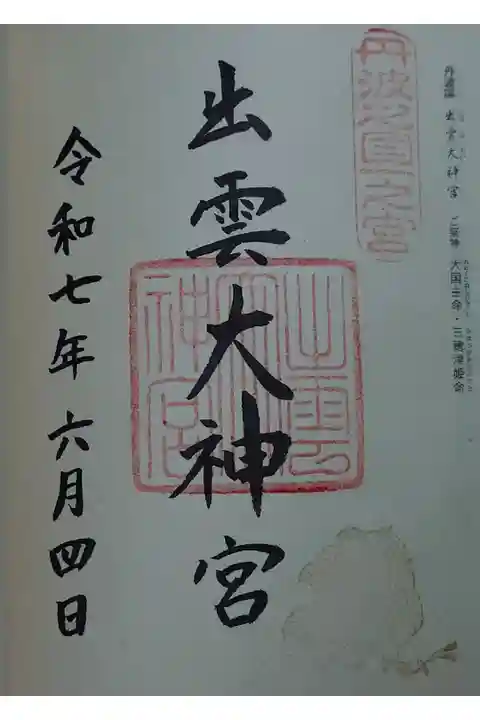 出雲大神宮 ご祭神 大国主命・三穂津姫命
丹波国一之宮
出雲大神宮
出雲大神宮
令和七年 六月四日